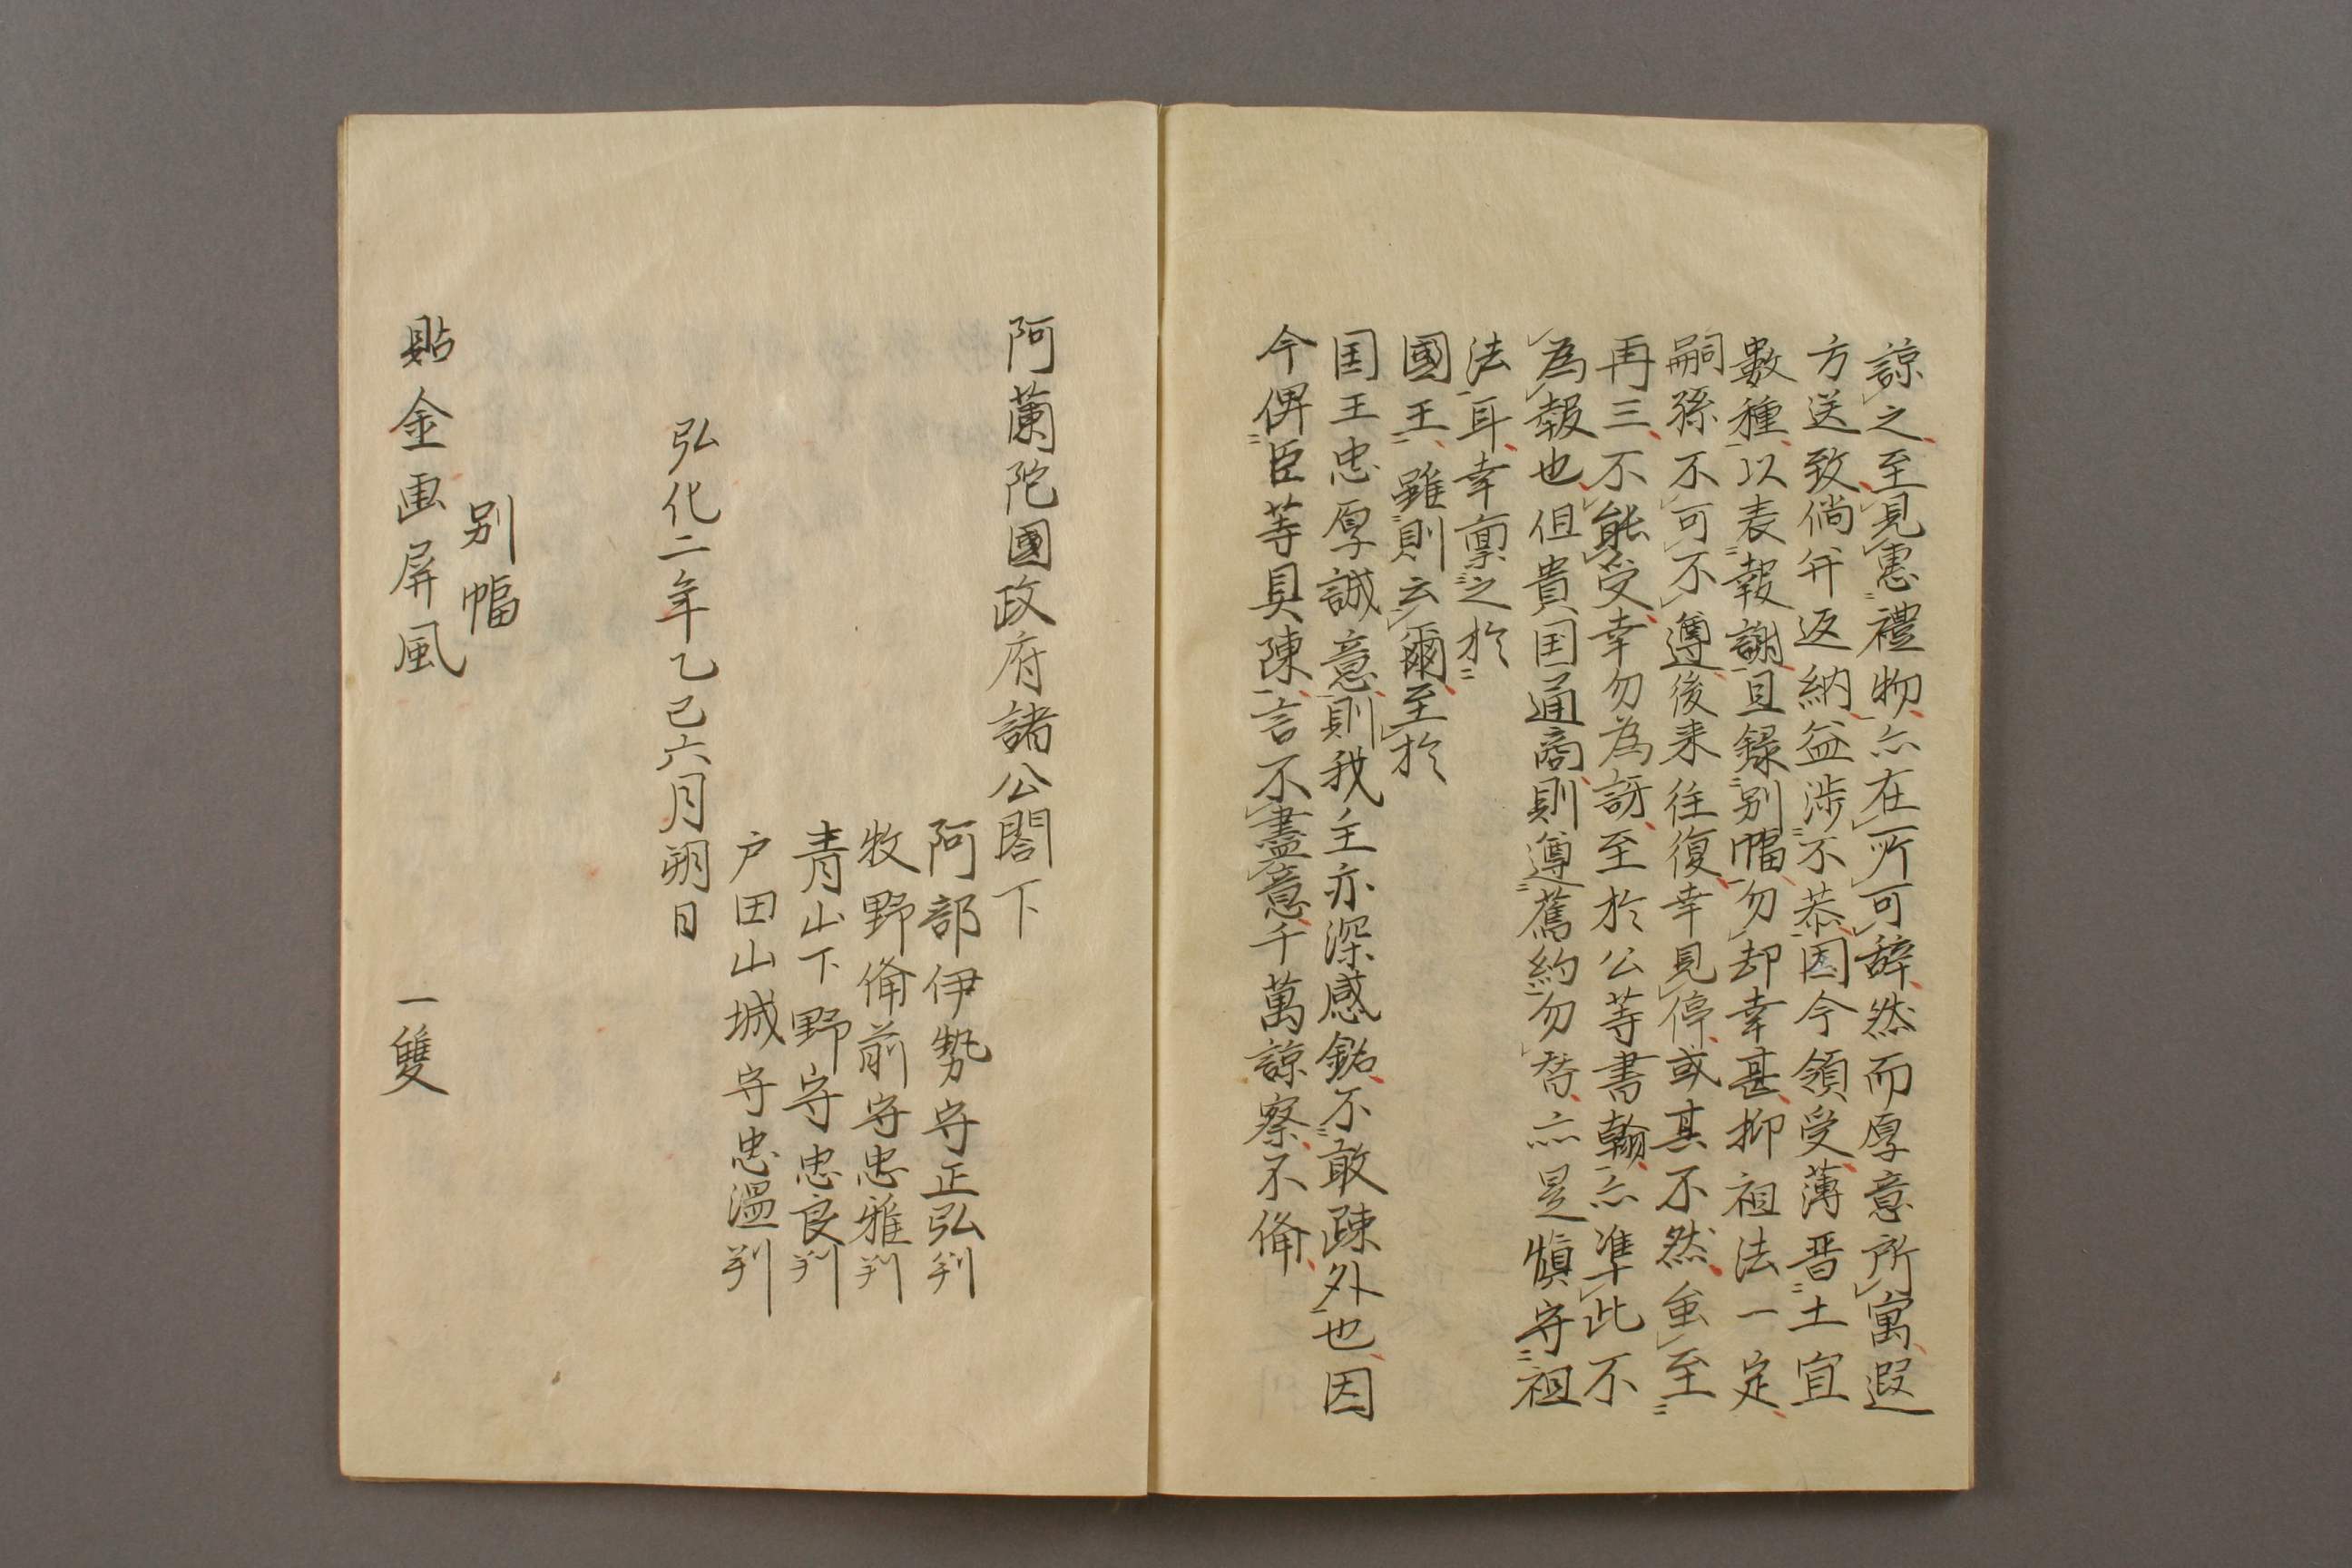 諒之至見惠禮物亦在所可辞然而厚意所寓遐
方送致倘并返納益渉不恭因今領受薄晋土宜
數種以表報謝且録别幅勿却幸甚抑祖法一定
嗣孫不可不遵後来往復幸見停或其不然虽至
再三不能受幸勿為訝至於公等書翰亦準此不
為報也但貴国通商則遵舊約勿替亦是慎守祖
法耳幸稟之於
國王雖則云爾至於
国王忠厚誠意則我主亦深感銘不敢疎外也因
今俾臣等具陳言不盡意千萬諒察不俻
阿蘭陀國政府諸公閣下
阿部伊勢守正弘判
牧野俻前守忠雅判
青山下野守忠良判
戸田山城守忠温判
弘化二年乙巳六月朔日
别幅
貼金画屏風　一雙